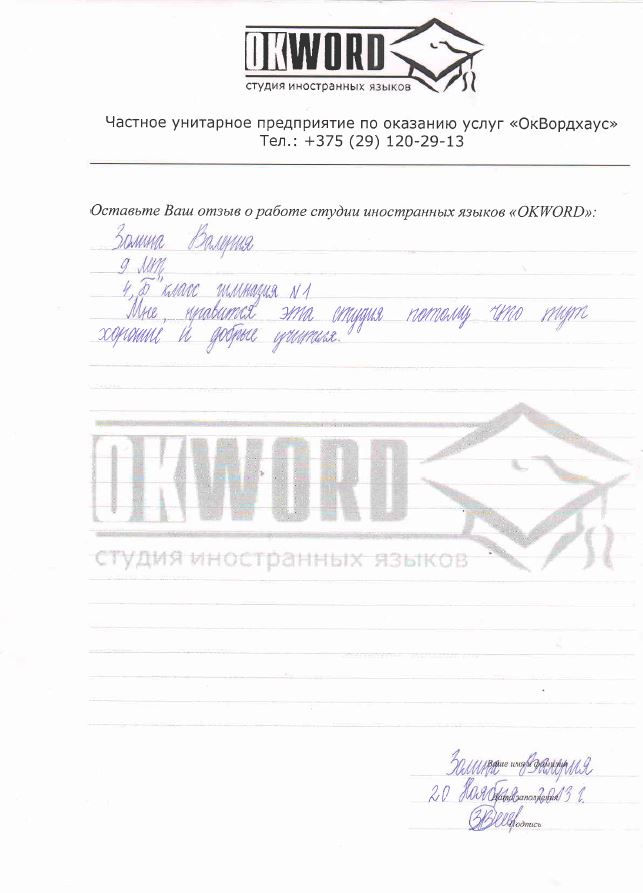 OKWORD
студия иностранных языков
Частное унитарное предприятие по оказанию услуг «ОкВордхаус»
Тел.: +375 (29) 120-29-13
Оставьте Ваш отзыв о работе студии иностранных языков «OKWORD»:
Золина Валерия
9 лет
4 „Б" класс гимназия N1
Мне, нравится эта студия потому что тут
хорошие и добрые учителя.
OKWORD
студия иностранных языков
Золина Валерия
Ваше имя и фамилия
20 Ноября 2013 г.
Дата заполнения
Подпись